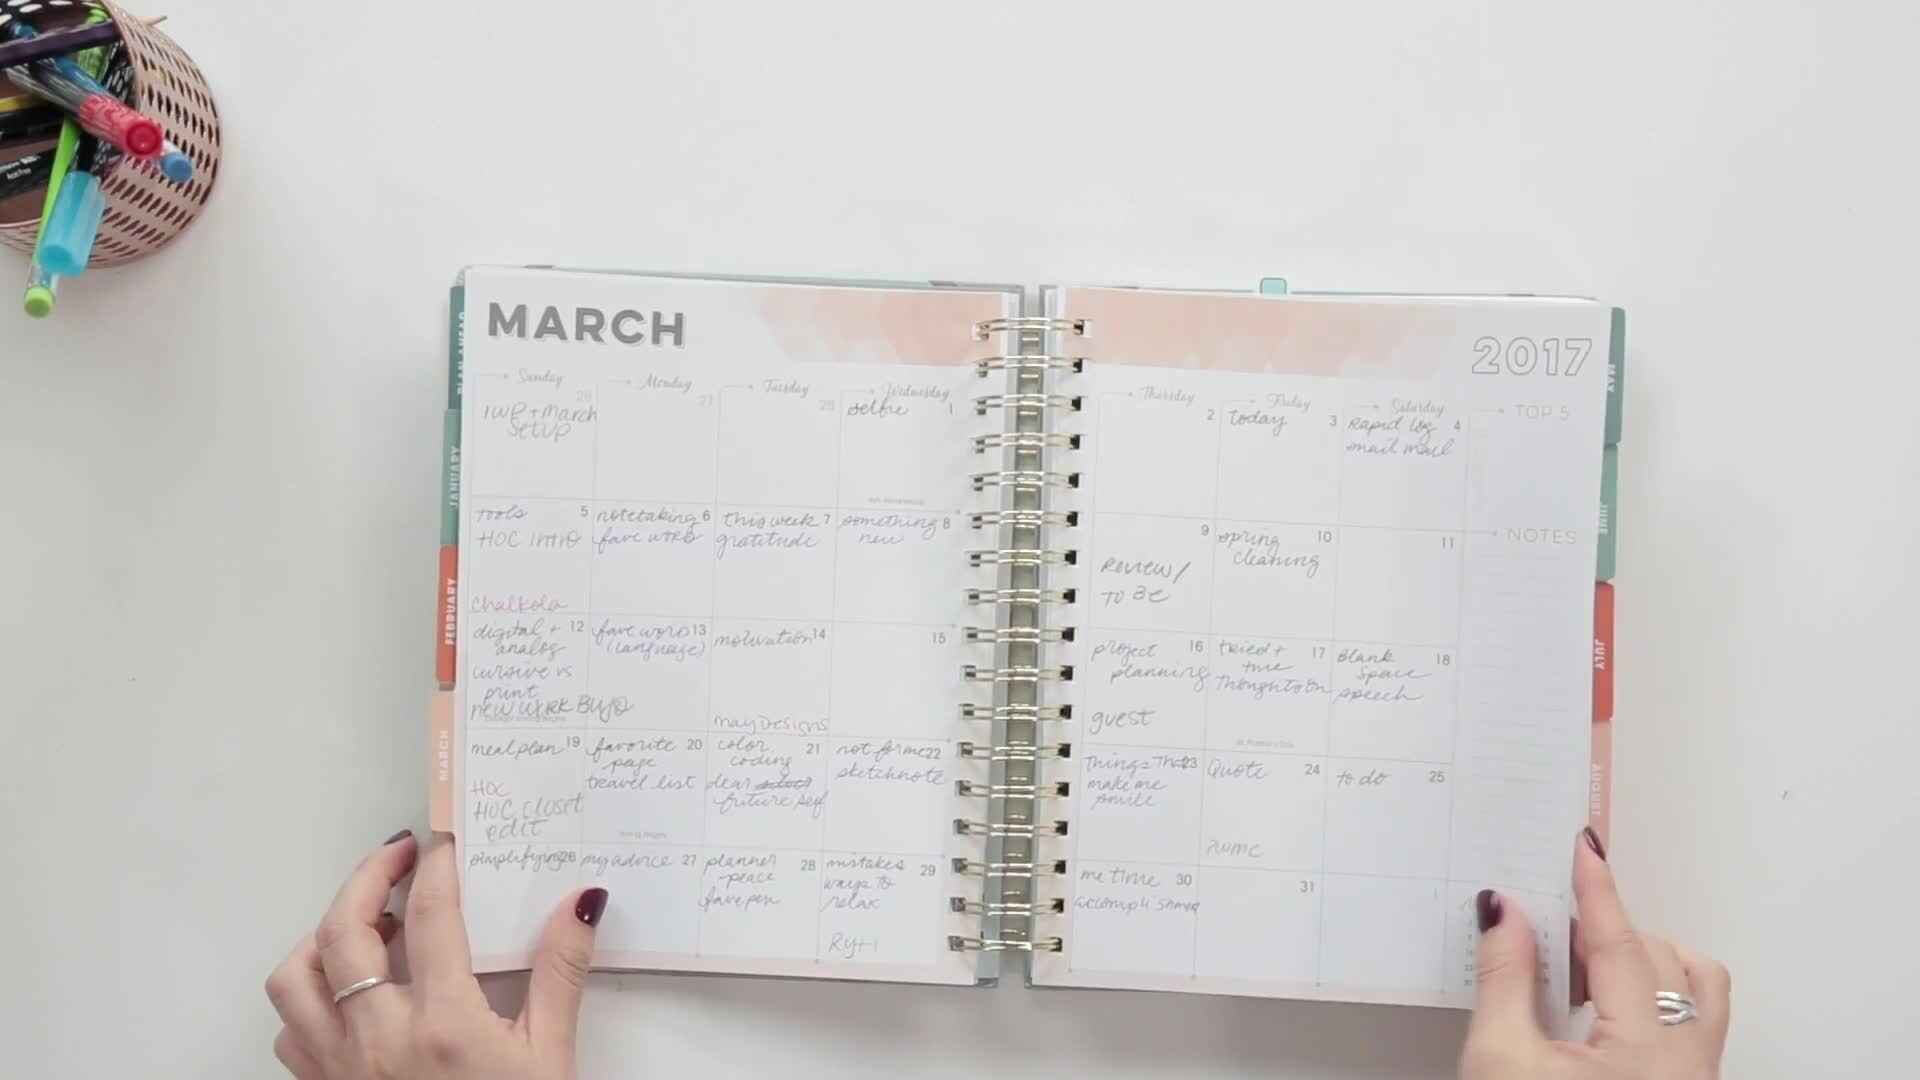 MARCH
2017
Sunday
Monday
Tuesday
Wednesday
Thursday
Friday
Saturday
TOP 5
26
IWP + March
Setup
27
28
selfie 1
2
today 3
Rapid log 4
snail mail
NOTES
Tools 5
HOC intro
Chalkola
notetaking 6
fave word
this week 7
gratitude
something 8
new
9
Review/
To Be
spring 10
cleaning
11
digital + 12
analog
cursive vs
print
new work BUJO
fave word 13
(language)
motivation 14
May Designs
15
project 16
planning
guest
tried + 17
true
Thoughts on
Blank 18
Space
speech
meal plan 19
HOC
HOC closet
edit
favorite 20
page
travel list
color 21
coding
dear
future self
not for me 22
sketchnote
Things That 23
make me
smile
Quote 24
to do 25
simplifying 26
my advice 27
planner 28
peace
fave pen
mistakes 29
ways to
relax
me time 30
accomplished
31
1
PLAN AHEAD
JANUARY
FEBRUARY
MARCH
MAY
JUNE
JULY
AUGUST